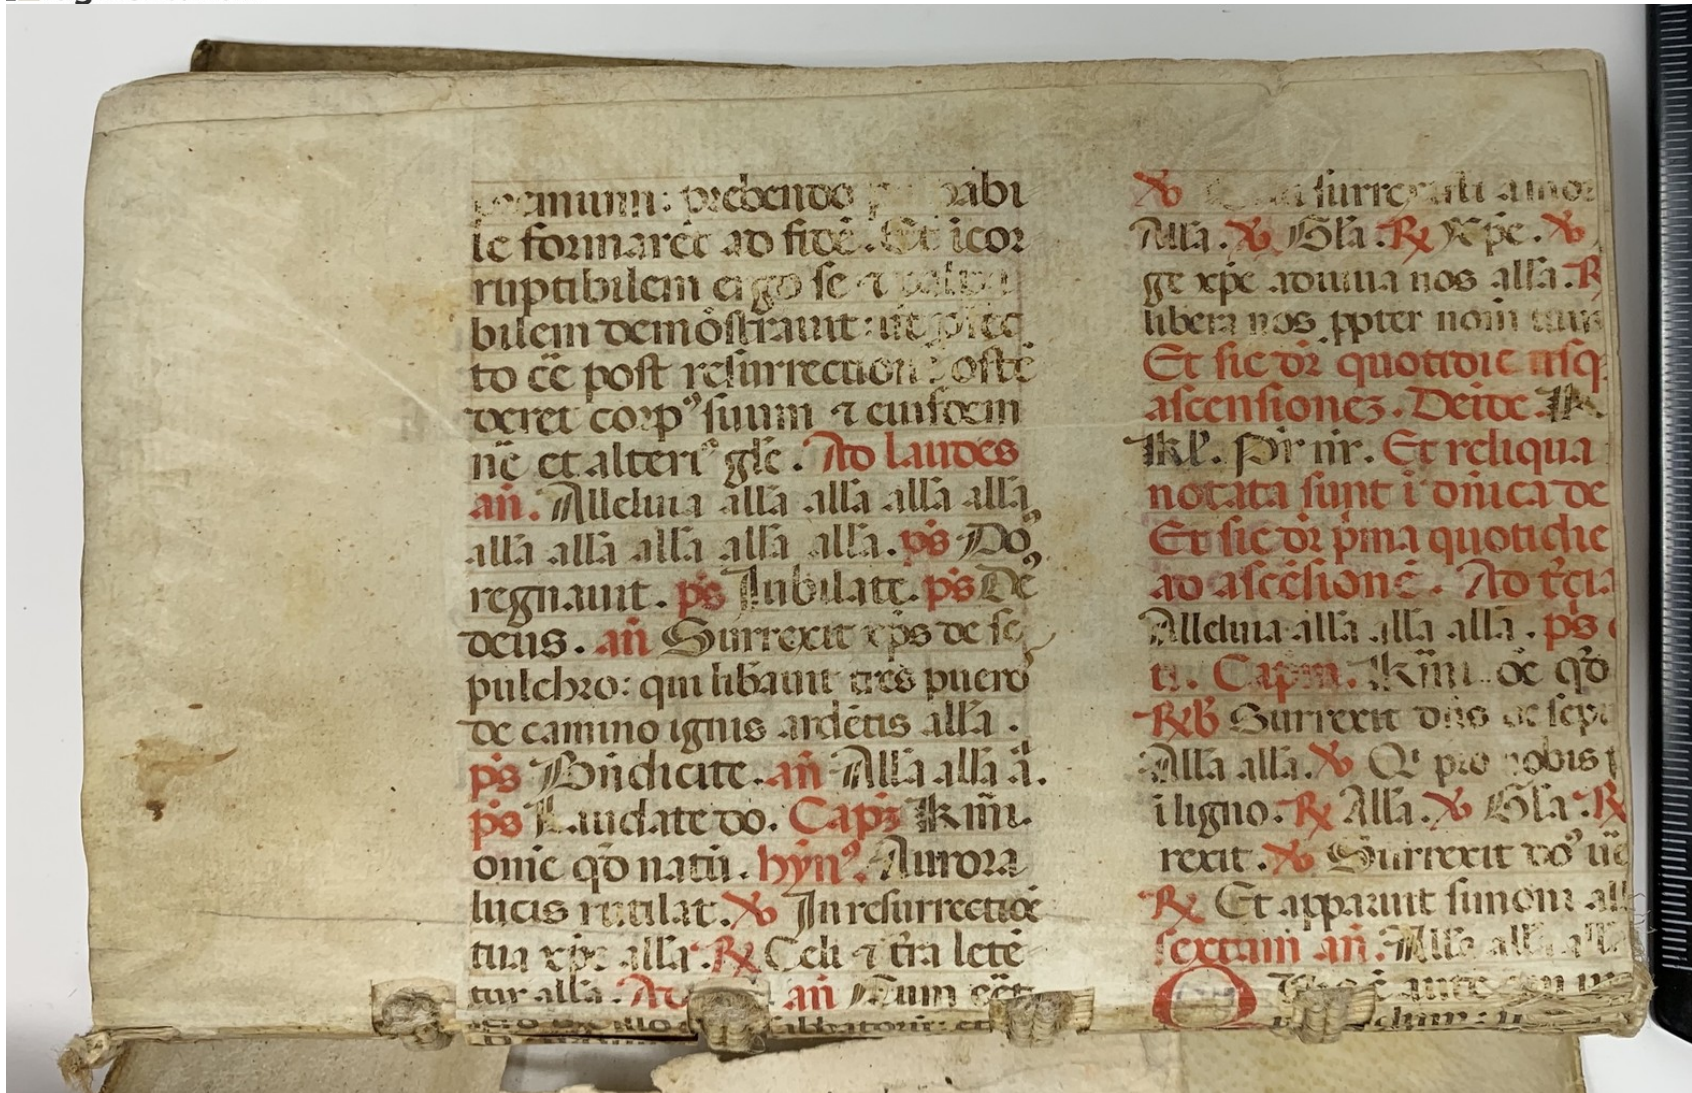 premium: prebendo palpabi
le formarēt ad fidē. Et īcor
ruptibilem ergo se ⁊ palpa
bilem demōstrauit: ut
to eē post resurrectionē ostē
deret corpꝰ suum ⁊ eiusdem
nē et alteriꝰ glē. Ad laudes
an̄. Alleluia all'a all'a all'a all'a
all'a all'a all'a all'a all'a. ps Do
regnauit. ps Iubilate. ps De
deus. an̄ Surrexit xp̄s de se
pulchro: qui lib̄auit tres pueros
de camino ignis ardētis all'a.
ps Bn̄dicite. an̄ All'a all'a a.
ps Laudate do. Cap
om̄e qd̓ natū. hynꝰ. Aurora
lucis rutilat. ℣ In resurrectiōe
tua xp̄e all'a. ℟ Celi ⁊ t̄ra letē
tur all'a. Ad an̄ Cum eēt
℣ surrexisti a mor
All'a. ℣ Gl'a. ℟ Xp̄e. ℣
ge xp̄e adiuua nos all'a. ℟
libera nos ꝓpter nom̄ tuu
Et sic dr̄ quotidie usq
ascensionez. Deīde. K
Kl'. Pr̄ nr̄. Et reliqua
notata sunt ī dn̄ica de
Et sic dr̄ p̓ma quotidie
ad ascēsionē. Ad t̓cia
Alleluia all'a all'a all'a. ps
ti. Cap om̄e qd̓
℟b Surrexit dn̄s de sepu
All'a all'a. ℣ Qi pro nobis p
i ligno. ℟ All'a. ℣ Gl'a. ℟
rexit. ℣ Surrexit doꝰ ue
℟ Et apparuit simoni all
sextam an̄. All'a all'a all'a